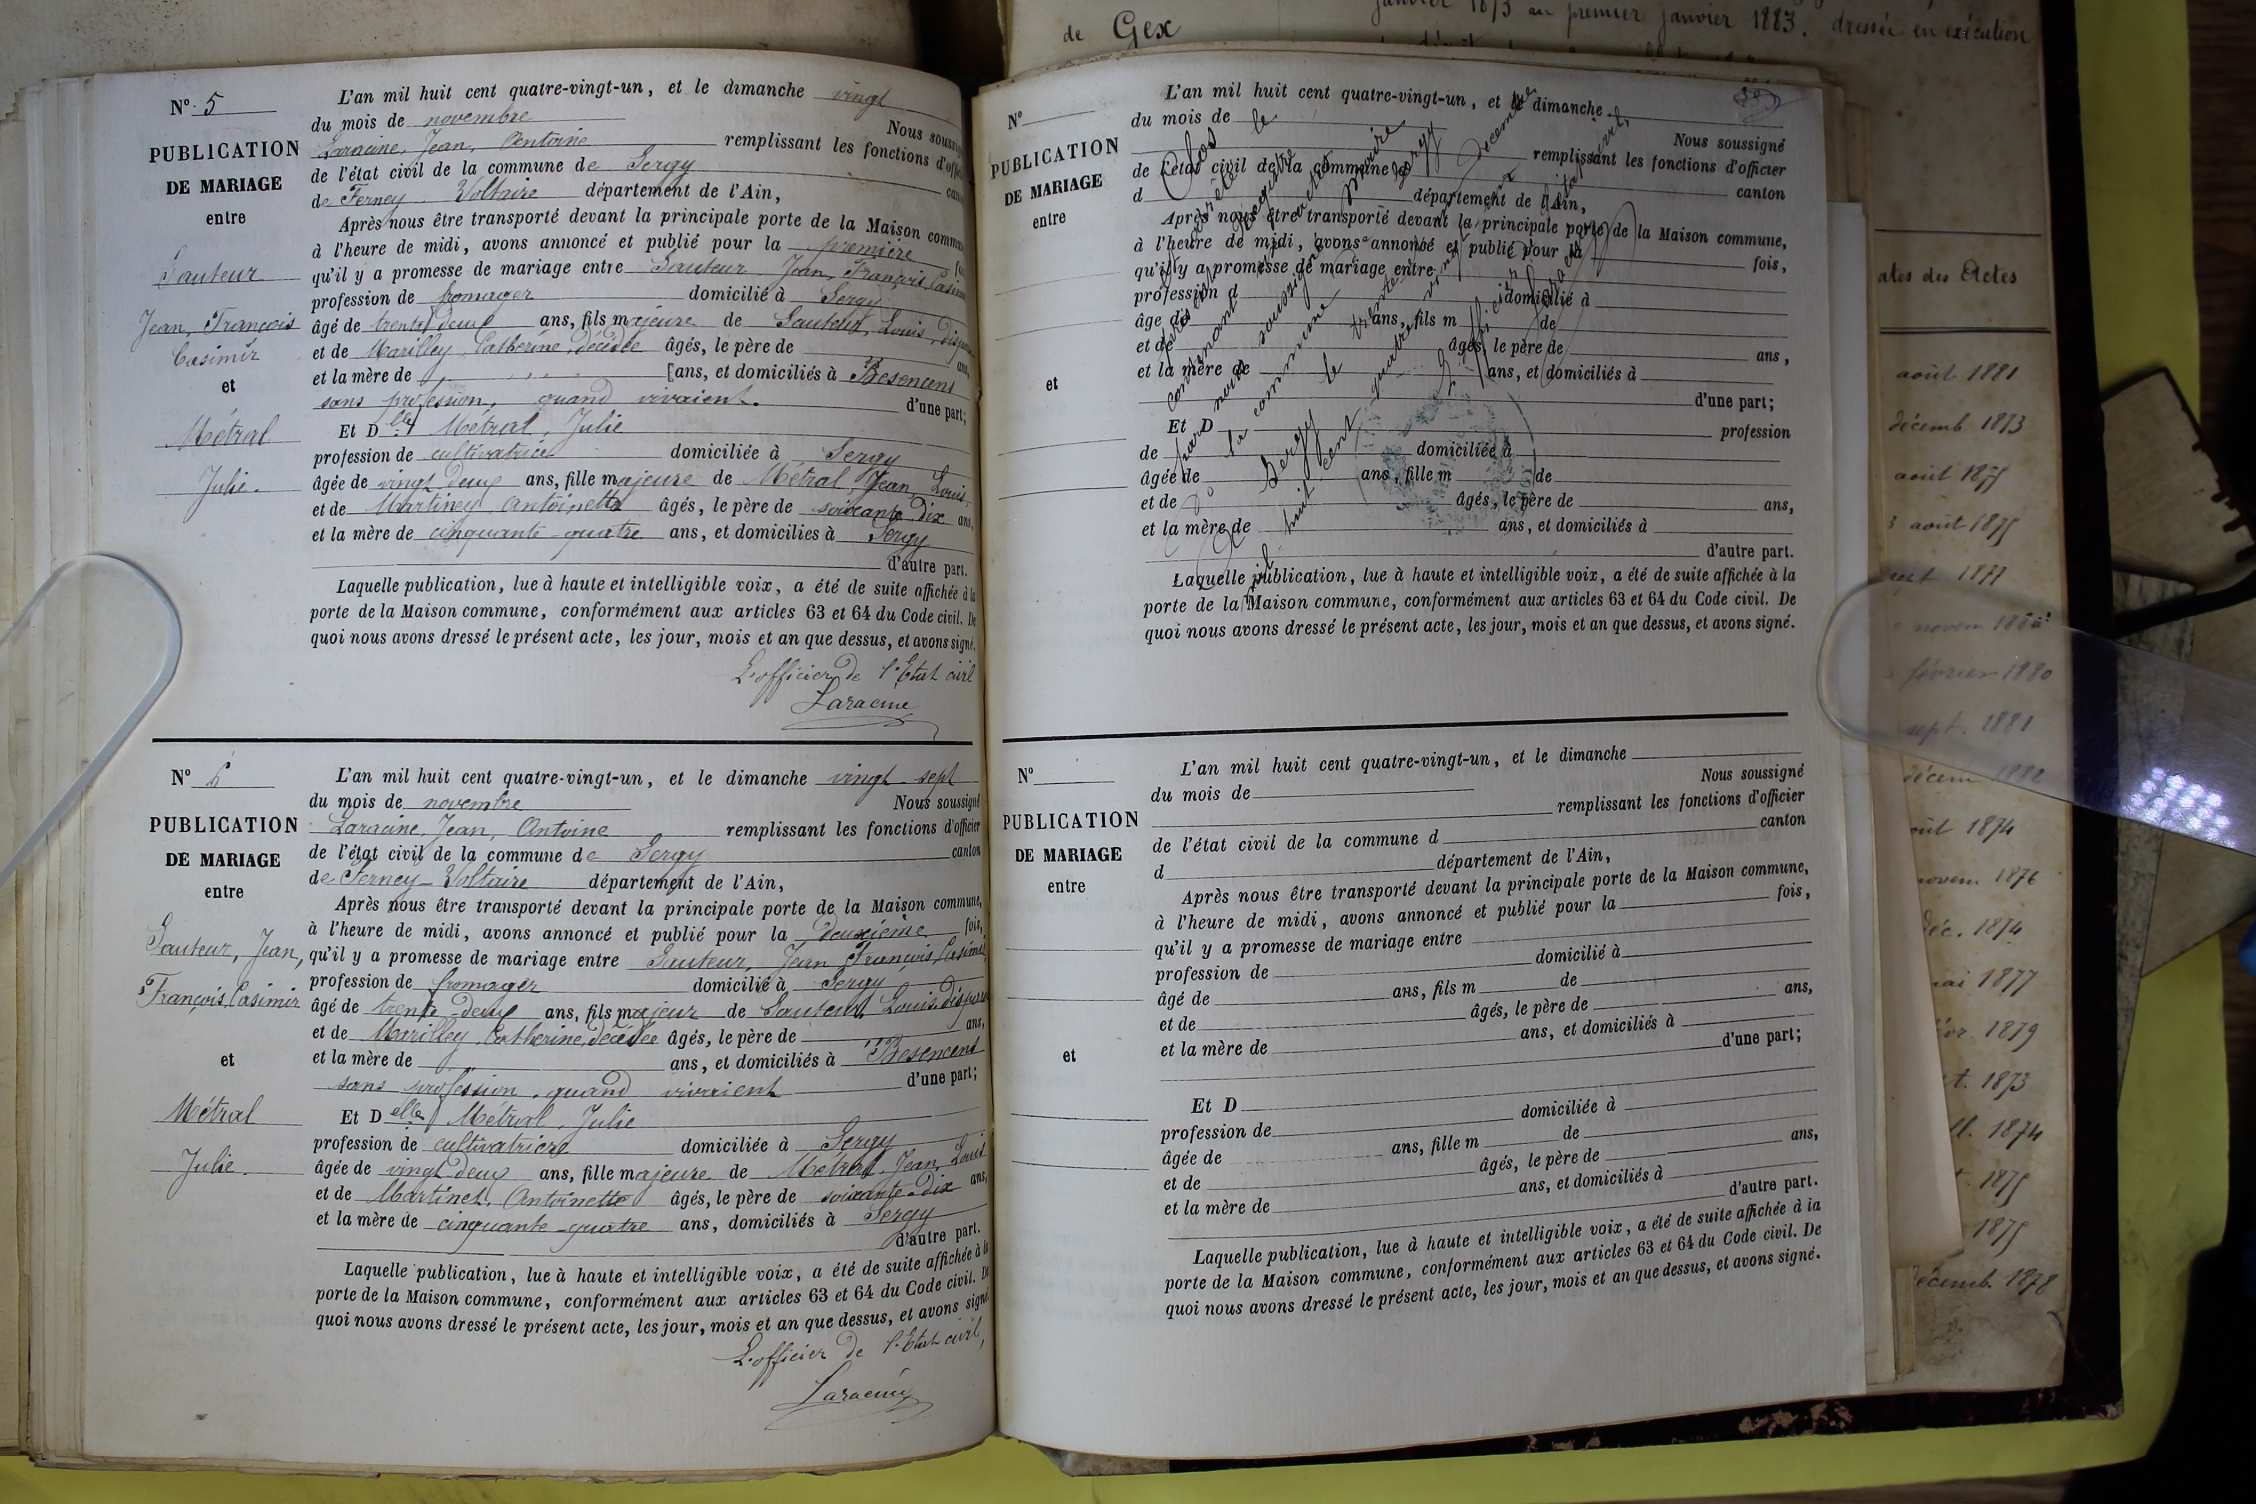 N° 5
PUBLICATION
DE MARIAGE
entre
Sauteur
Jean, François
Casimir
et
Métral
Julie.
L'an mil huit cent quatre-vingt-un, et le dimanche vingt
du mois de novembre Nous soussigné
Laracine, Jean, Antoine remplissant les fonctions d'officier
de l'état civil de la commune de Sergy canton
de Ferney-Voltaire département de l'Ain,
Après nous être transporté devant la principale porte de la Maison commune,
à l'heure de midi, avons annoncé et publié pour la première fois,
qu'il y a promesse de mariage entre Sauteur Jean, François, Casimir
profession de fromager domicilié à Sergy
âgé de trente deux ans, fils majeure de Sauteur, Louis, disparu
et de Marilley, Catherine, décédée âgés, le père de ans,
et la mère de ans, et domiciliés à Besencens
sans profession, quand vivaient. d'une part;
Et Delle Métral, Julie
profession de cultivatrice domiciliée à Sergy
âgée de vingt deux ans, fille majeure de Métral, Jean, Louis
et de Martinet, Antoinette âgés, le père de soixante dix ans,
et la mère de cinquante-quatre ans, et domiciliés à Sergy
d'autre part.
Laquelle publication, lue à haute et intelligible voix, a été de suite affichée à la
porte de la Maison commune, conformément aux articles 63 et 64 du Code civil. De
quoi nous avons dressé le présent acte, les jour, mois et an que dessus, et avons signé.
L'officier de l'Etat civil
Laracine
N° 6
PUBLICATION
DE MARIAGE
entre
Sauteur, Jean,
François, Casimir
et
Métral
Julie.
L'an mil huit cent quatre-vingt-un, et le dimanche vingt-sept
du mois de novembre Nous soussigné
Laracine, Jean, Antoine remplissant les fonctions d'officier
de l'état civil de la commune de Sergy canton
de Ferney-Voltaire département de l'Ain,
Après nous être transporté devant la principale porte de la Maison commune,
à l'heure de midi, avons annoncé et publié pour la deuxième fois,
qu'il y a promesse de mariage entre Sauteur, Jean François, Casimir
profession de fromager domicilié à Sergy
âgé de trente-deux ans, fils majeur de Sauteur, Louis, disparu
et de Marilley, Catherine, décédée âgés, le père de ans,
et la mère de ans, et domiciliés à Besencens
sans profession, quand vivaient d'une part;
Et Delle Métral, Julie
profession de cultivatrice domiciliée à Sergy
âgée de vingt deux ans, fille majeure de Métral, Jean, Louis
et de Martinet, Antoinette âgés, le père de soixante-dix ans,
et la mère de cinquante-quatre ans, domiciliés à Sergy
d'autre part.
Laquelle publication, lue à haute et intelligible voix, a été de suite affichée à la
porte de la Maison commune, conformément aux articles 63 et 64 du Code civil. De
quoi nous avons dressé le présent acte, les jour, mois et an que dessus, et avons signé.
L'officier de l'Etat civil,
Laracine
N°
PUBLICATION
DE MARIAGE
entre
et
L'an mil huit cent quatre-vingt-un, et le dimanche
du mois de Nous soussigné
remplissant les fonctions d'officier
de l'état civil de la commune d canton
d département de l'Ain,
Après nous être transporté devant la principale porte de la Maison commune,
à l'heure de midi, avons annoncé et publié pour la fois,
qu'il y a promesse de mariage entre
profession d domicilié à
âgé de ans, fils m de
et de âgés, le père de ans,
et la mère de ans, et domiciliés à
d'une part;
Et D profession
de domiciliée à
âgée de ans, fille m de
et de âgés, le père de ans,
et la mère de ans, et domiciliés à
d'autre part.
Laquelle publication, lue à haute et intelligible voix, a été de suite affichée à la
porte de la Maison commune, conformément aux articles 63 et 64 du Code civil. De
quoi nous avons dressé le présent acte, les jour, mois et an que dessus, et avons signé.
Clos et arrêté le
registre
contenant
par nous soussigné maire
de la commune de Sergy
Sergy le trente décembre
mil huit cent quatre vingt
N°
PUBLICATION
DE MARIAGE
entre
et
L'an mil huit cent quatre-vingt-un, et le dimanche
du mois de Nous soussigné
remplissant les fonctions d'officier
de l'état civil de la commune d canton
d département de l'Ain,
Après nous être transporté devant la principale porte de la Maison commune,
à l'heure de midi, avons annoncé et publié pour la fois,
qu'il y a promesse de mariage entre
profession de domicilié à
âgé de ans, fils m de
et de âgés, le père de ans,
et la mère de ans, et domiciliés à
d'une part;
Et D
profession de domiciliée à
âgée de ans, fille m de
et de âgés, le père de ans,
et la mère de ans, et domiciliés à
d'autre part.
Laquelle publication, lue à haute et intelligible voix, a été de suite affichée à la
porte de la Maison commune, conformément aux articles 63 et 64 du Code civil. De
quoi nous avons dressé le présent acte, les jour, mois et an que dessus, et avons signé.
janvier 1873 au premier janvier 1883. dressée en exécution
de Gex
ates des Actes
août 1881
décemb 1873
août 1875
août 1875
1877
novem
février 1880
sept. 1881
décem 1882
1874
novem 1876
déc. 1874
mai 1877
1879
1873
1874
1875
1875
décemb. 1878